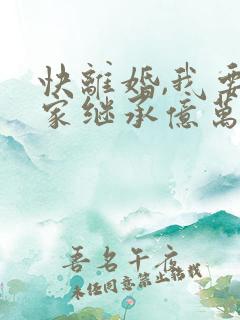 快離婚,我要
家继承億萬
吾名午夜
未经同意禁止转载